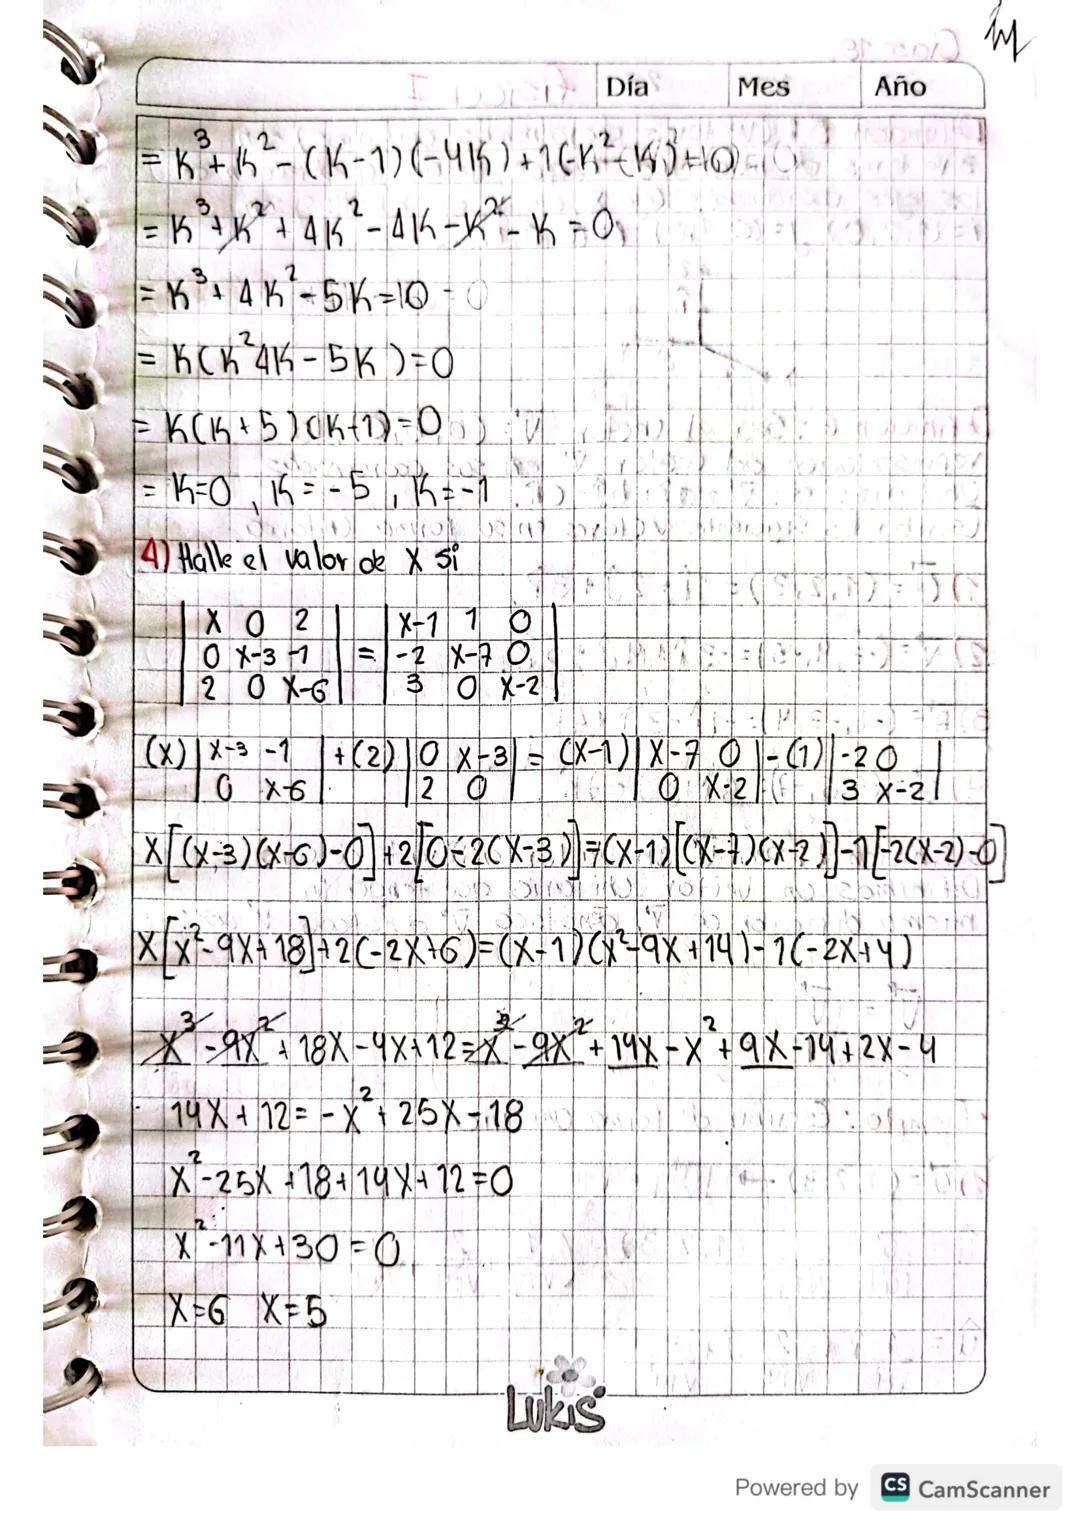 Día Mes Año
= K³ + K² - (K-1)(-4K) + 1(-K²-K)=0
= K³ + K² + 4K² - 4K - K² - K = 0
= K³ + 4K² - 5K = 0
= K(K²4K - 5K) = 0
= K(K + 5)(K+1) = 0
= K=0, K = -5, K=-1
4) Halle el valor de X si
| X 0 2 | | X-1 1 0 |
| 0 X-3 -1 | = | -2 X-7 0 |
| 2 0 X-6 | | 3 0 X-2 |
(X) | X-3 -1 | + (2) | 0 X-3 | = (X-1) | X-7 0 | - (1) | -2 0 |
| 0 X-6 | | 2 0 | | 0 X-2 | | 3 X-2 |
X[(X-3)(X-6)-0] + 2[0-2(X-3)] = (X-1)[(X-7)(X-2)] - 1[-2(X-2)-0]
X[X²-9X+18] + 2(-2X+6) = (X-1)(X²-9X+14) - 1(-2X+4)
X³ - 9X² + 18X - 4X + 12 = X³ - 9X² + 14X - X² + 9X - 14 + 2X - 4
14X + 12 = -X² + 25X - 18
X² - 25X + 18 + 14X + 12 = 0
X² - 11X + 30 = 0
X=6 X=5
Lukis
Powered by CS CamScanner